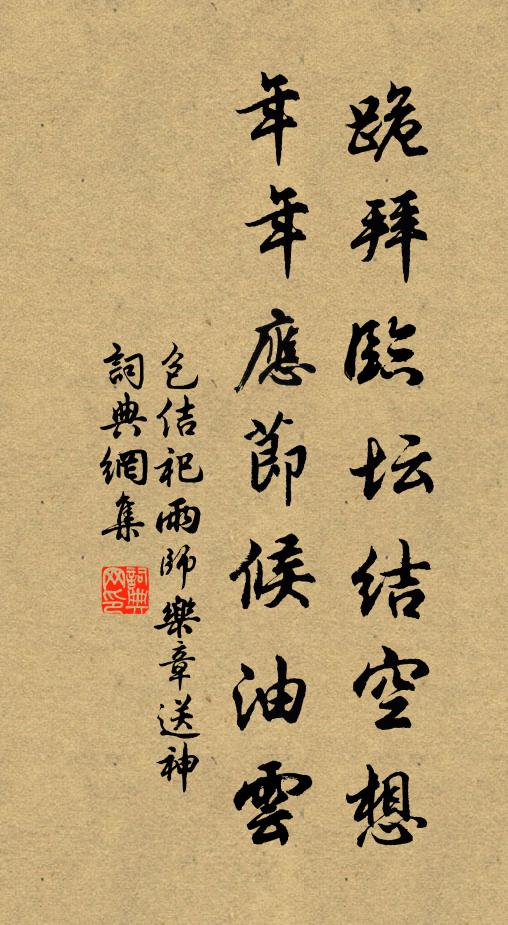 跪拜臨坛结空想
年年應節候油雲
包佶祀雨師樂章送神
詞典網集
詞典网印